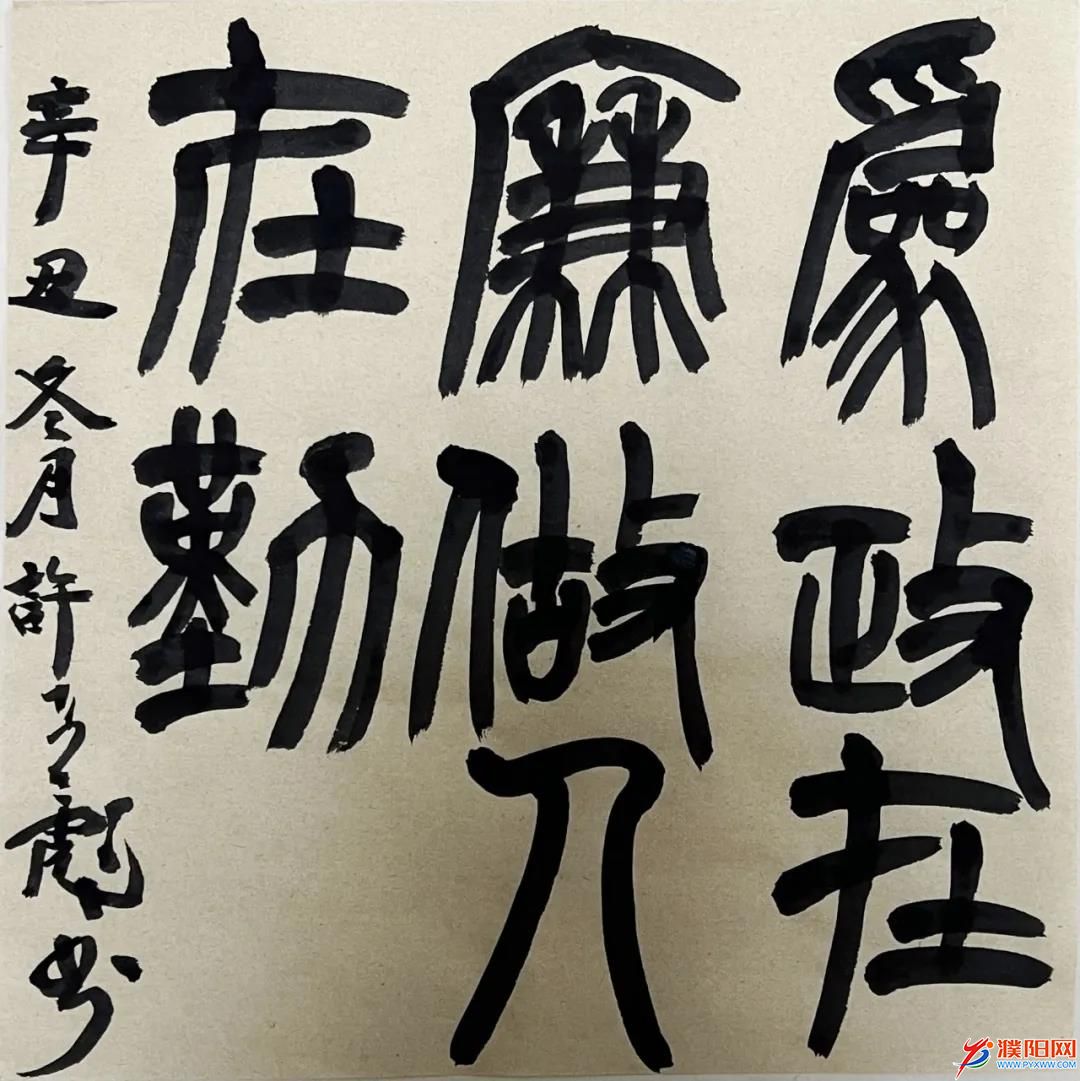 爲政在
廉做人
在勤
辛丑冬月許
書
濮阳网
WWW.PYXWW.COM